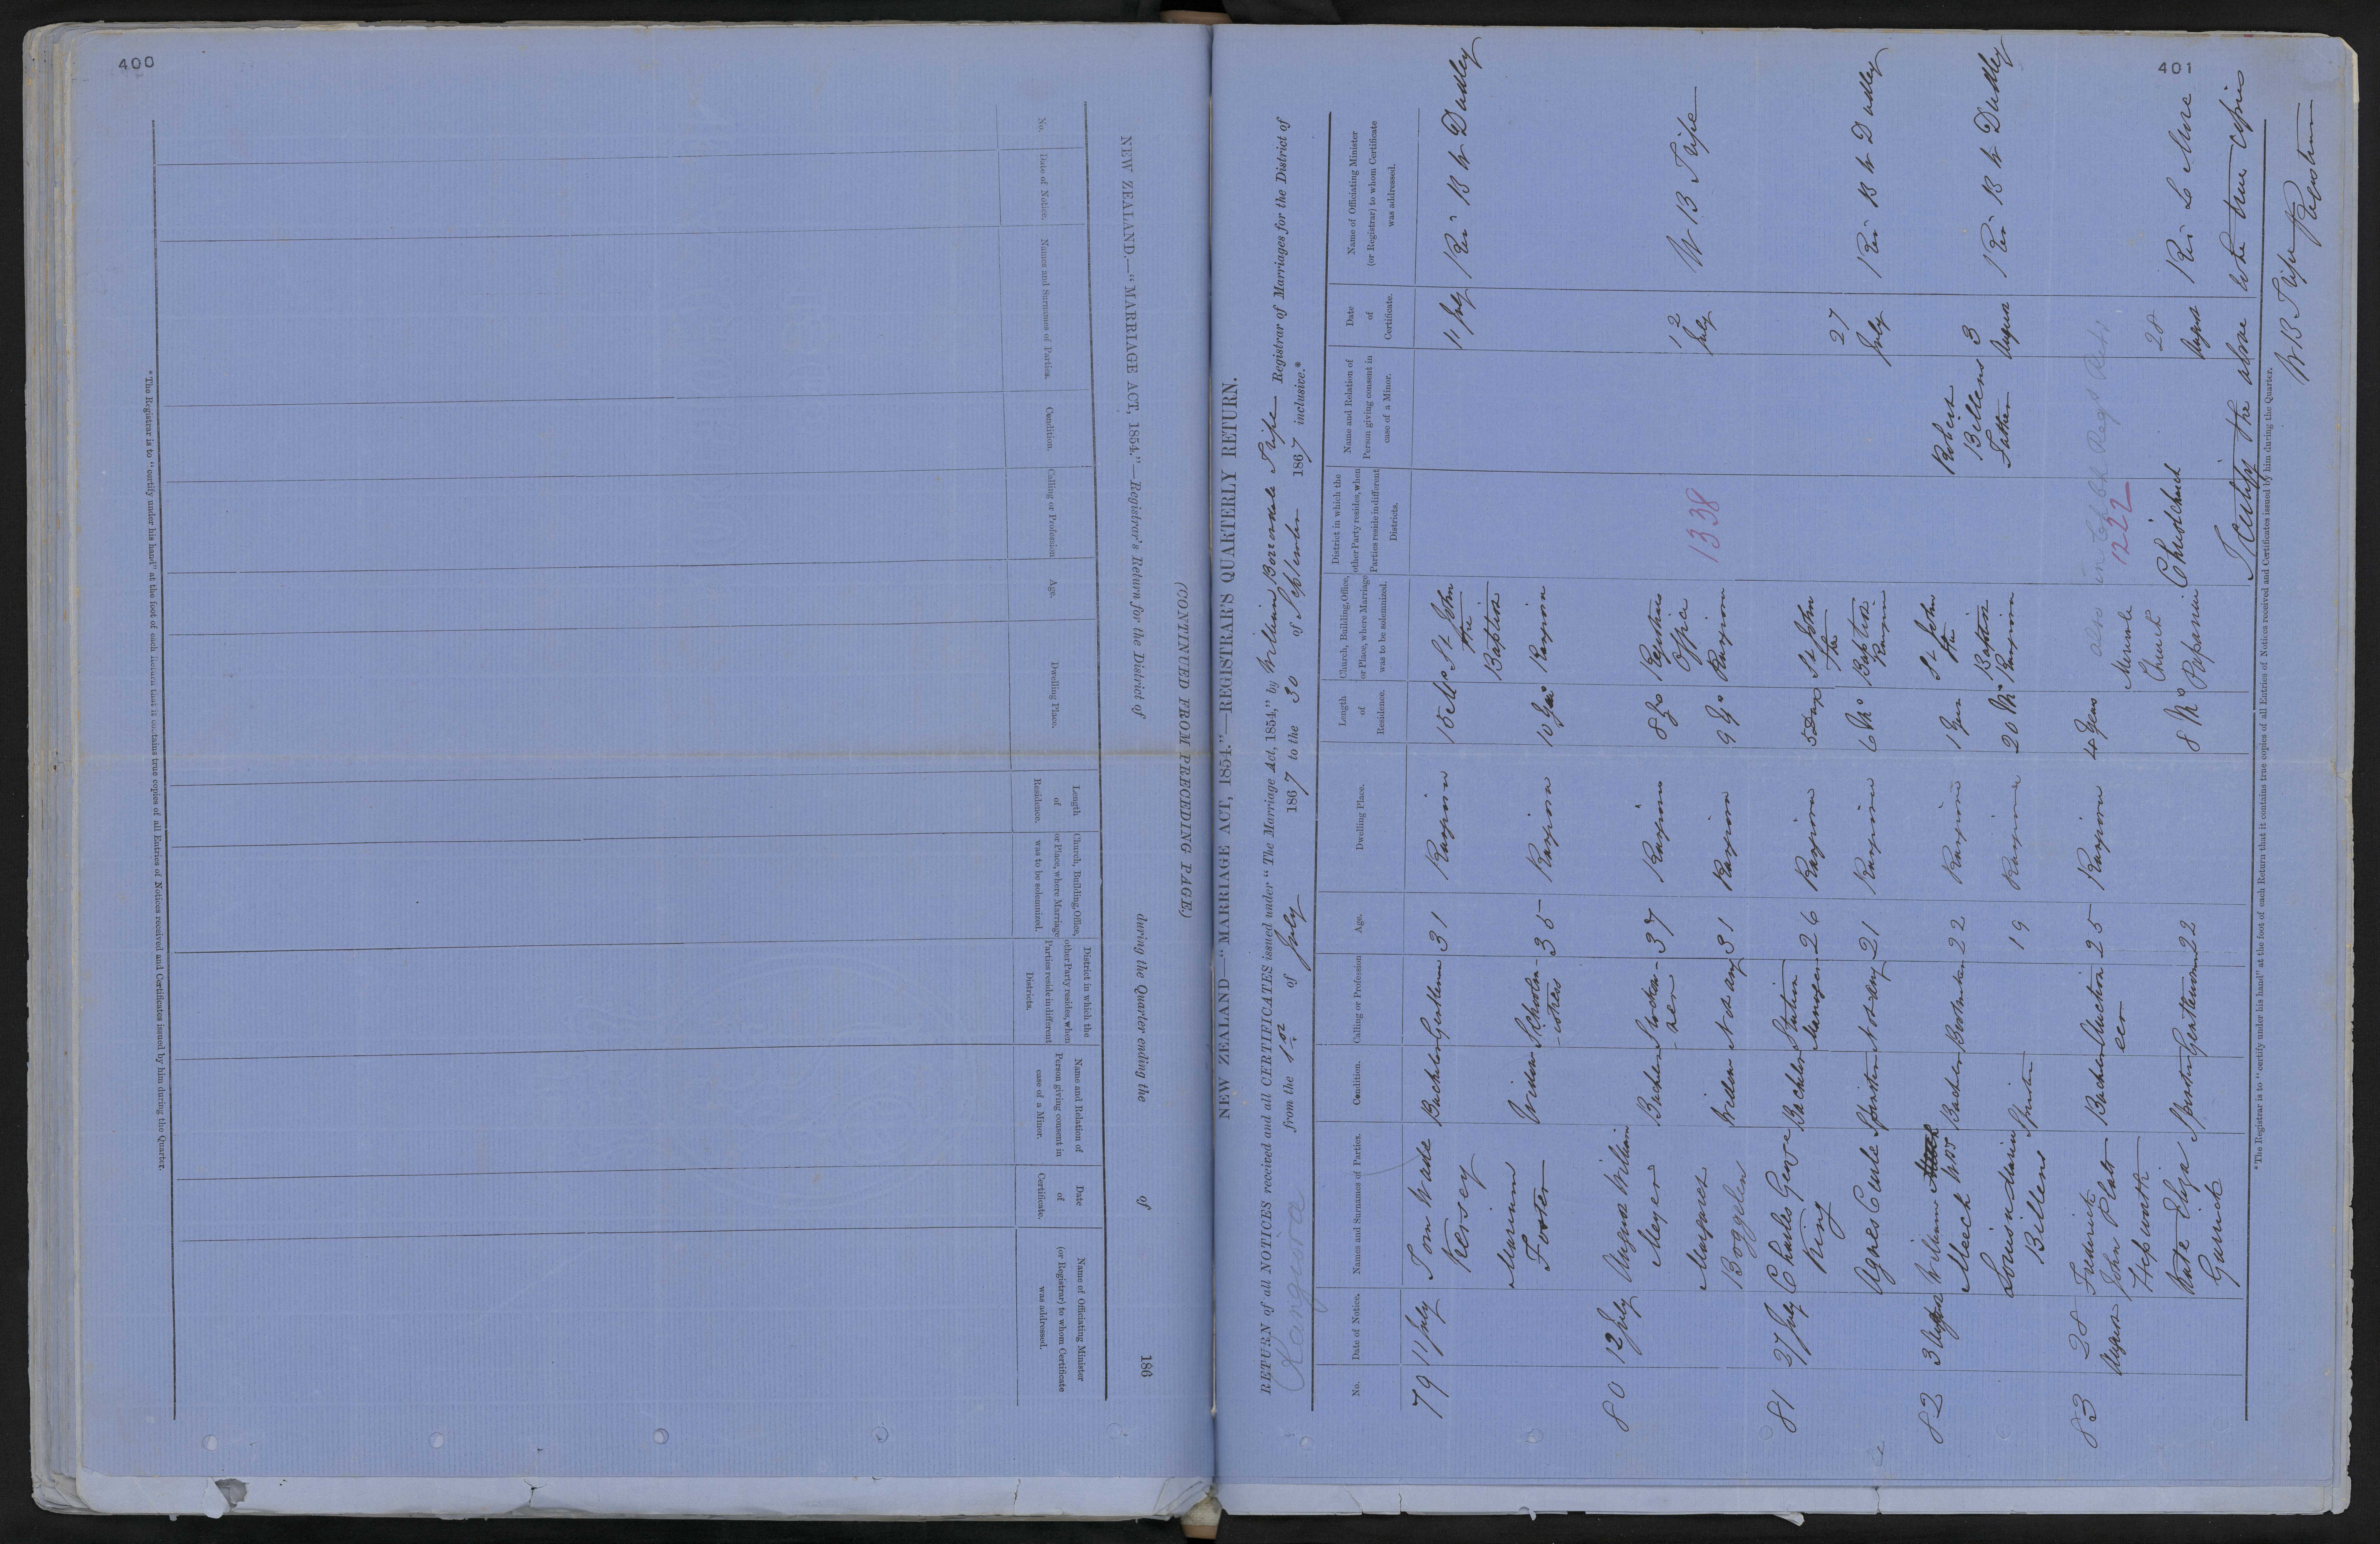 400
NEW ZEALAND.—"MARRIAGE ACT, 1854."—Registrar's Return for the District of during the Quarter ending the of 186
(CONTINUED FROM PRECEDING PAGE.)
No. Date of Notice. Names and Surnames of Parties. Condition. Calling or Profession Age. Dwelling Place. Length of Residence. Church, Building, Office, or Place, where Marriage was to be solemnized. District in which the other Party resides, when Parties reside in different Districts. Name and Relation of Person giving consent in case of a Minor. Date of Certificate. Name of Officiating Minister (or Registrar) to whom Certificate was addressed.
*The Registrar is to "certify under his hand" at the foot of each Return that it contains true copies of all Entries of Notices received and Certificates issued by him during the Quarter.
401
NEW ZEALAND—"MARRIAGE ACT, 1854."—REGISTRAR'S QUARTERLY RETURN.
RETURN of all NOTICES received and all CERTIFICATES issued under "The Marriage Act, 1854," by William Tripe Registrar of Marriages for the District of
Rangiora from the 1st of July 1867 to the 30 of September 1867 inclusive.*
No. Date of Notice. Names and Surnames of Parties. Condition. Calling or Profession Age. Dwelling Place. Length of Residence. Church, Building, Office, or Place, where Marriage was to be solemnized. District in which the other Party resides, when Parties reside in different Districts. Name and Relation of Person giving consent in case of a Minor. Date of Certificate. Name of Officiating Minister (or Registrar) to whom Certificate was addressed.
79 11 July Tom Wade Bachelor Gentleman 31 Rangiora St John 11 July Rev B W Dudley
Kersey the
Baptist
Mariann Widow 35 Rangiora 10 Rangiora
Foster
80 12 July August William Bachelor 37 Rangiora 8 Registrars 12 W B Tripe
Meyer Office July
1338
Margaret Widow Not any 31 Rangiora 9 Rangiora
Boggelen
81 27 July Charles George Bachelor Station 26 Rangiora 5 Days St John 27 Rev B W Dudley
King Manager the July
Agnes Spinster Not any 21 Rangiora 6 Mo Baptist
Rangiora
82 3 August William Bachelor 22 Rangiora 1 Year St John Robert 3 Rev B W Dudley
Meech the Billens August
Louisa Spinster 19 Rangiora 20 Mo Baptist Father
Billens Rangiora
also in Regr
1222
83 28 Frederick Bachelor Auction 25 Rangiora 4 Years 28 Rev Le Mere
August John Platt eer Church August
Hepworth
Kate Eliza Spinster Gentlewoman 22 8 Mo Papanui Christchurch
Garrick
I Certify the above to be true copies
W B Tripe Registrar
*The Registrar is to "certify under his hand" at the foot of each Return that it contains true copies of all Entries of Notices received and Certificates issued by him during the Quarter.